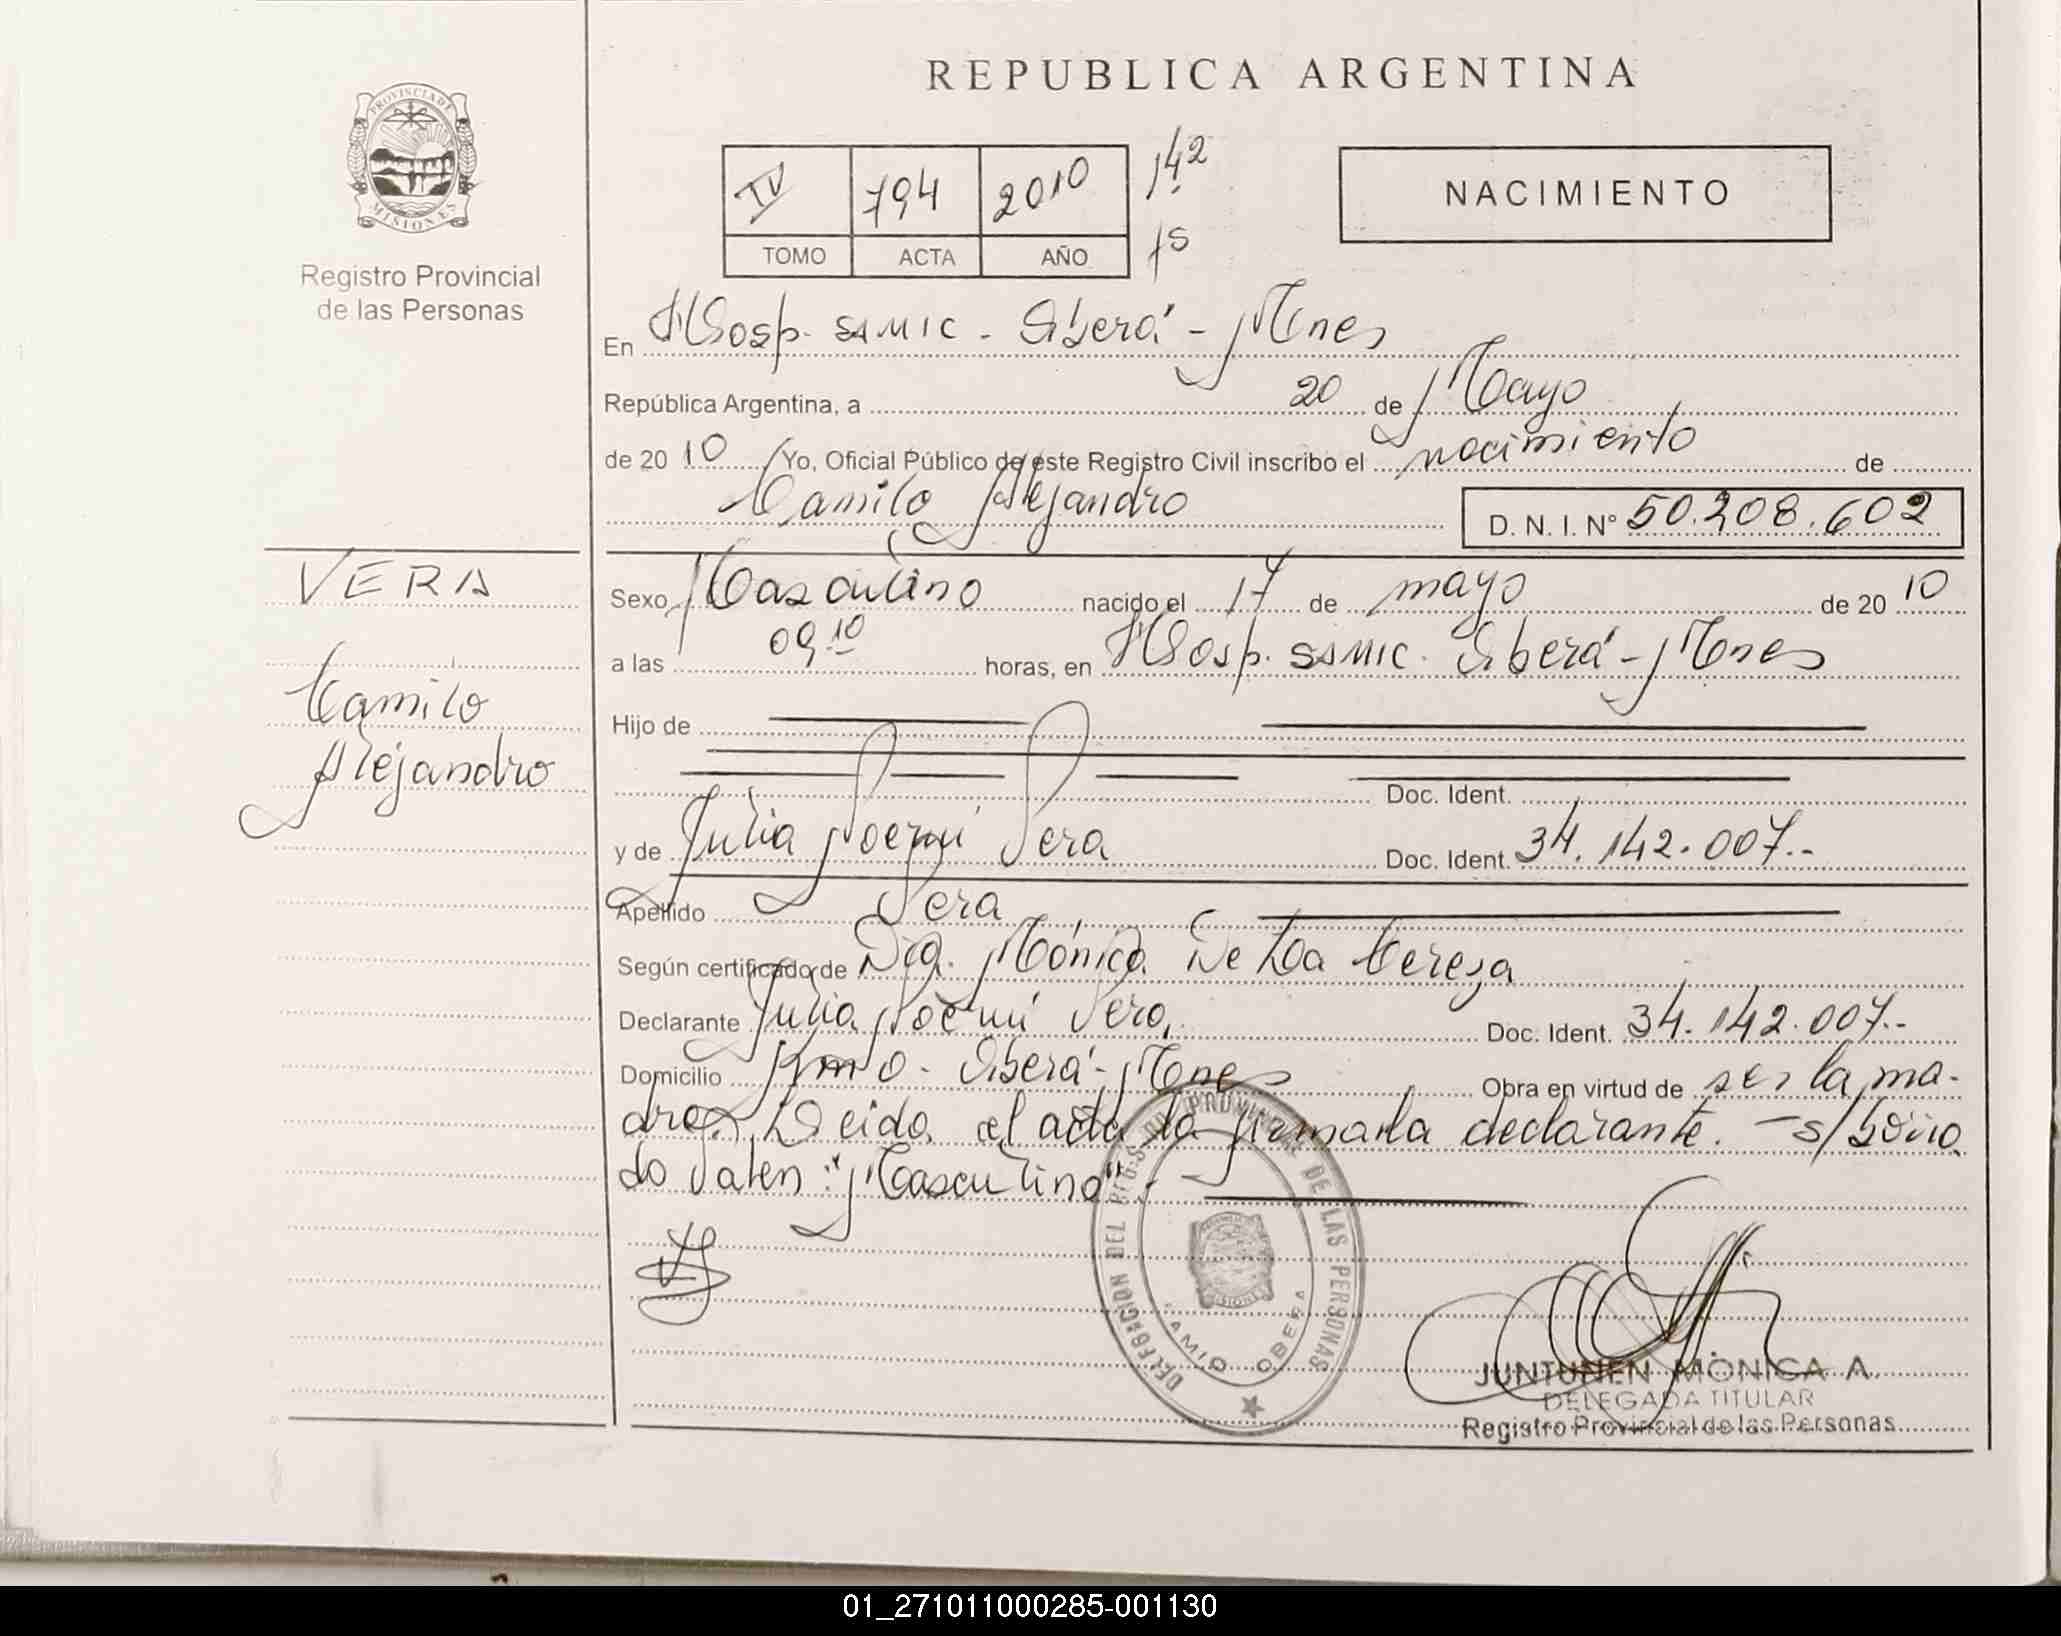 REPUBLICA ARGENTINA
PROVINCIA DE MISIONES
Registro Provincial
de las Personas
IV 794 2010 142
TOMO ACTA AÑO 75
NACIMIENTO
En Hosp. SAMIC - Oberá - Mnes
República Argentina, a 20 de Mayo
de 2010 Yo, Oficial Público de este Registro Civil inscribo el nacimiento de
Camilo Alejandro D. N. I. N° 50.208.602
VERA
Camilo
Alejandro
Sexo Masculino nacido el 17 de mayo de 2010
a las 09.10 horas, en Hosp. SAMIC. Oberá - Mnes
Hijo de
Doc. Ident.
y de Julia Noemí Vera Doc. Ident. 34.142.007.-
Apellido Vera
Según certificado de Mónica De La
Declarante Julia Noemí Vera Doc. Ident. 34.142.007.-
Domicilio Oberá - Mnes Obra en virtud de ser la ma-
dre. Leida el acta la firma la declarante. - s/borra
do Valen: "Masculino".-
DELEGACION DEL REG. PROVINCIAL DE LAS PERSONAS
OBERA
JUNTUNEN MÓNICA A.
DELEGADA TITULAR
Registro Provincial de las Personas
01_271011000285-001130